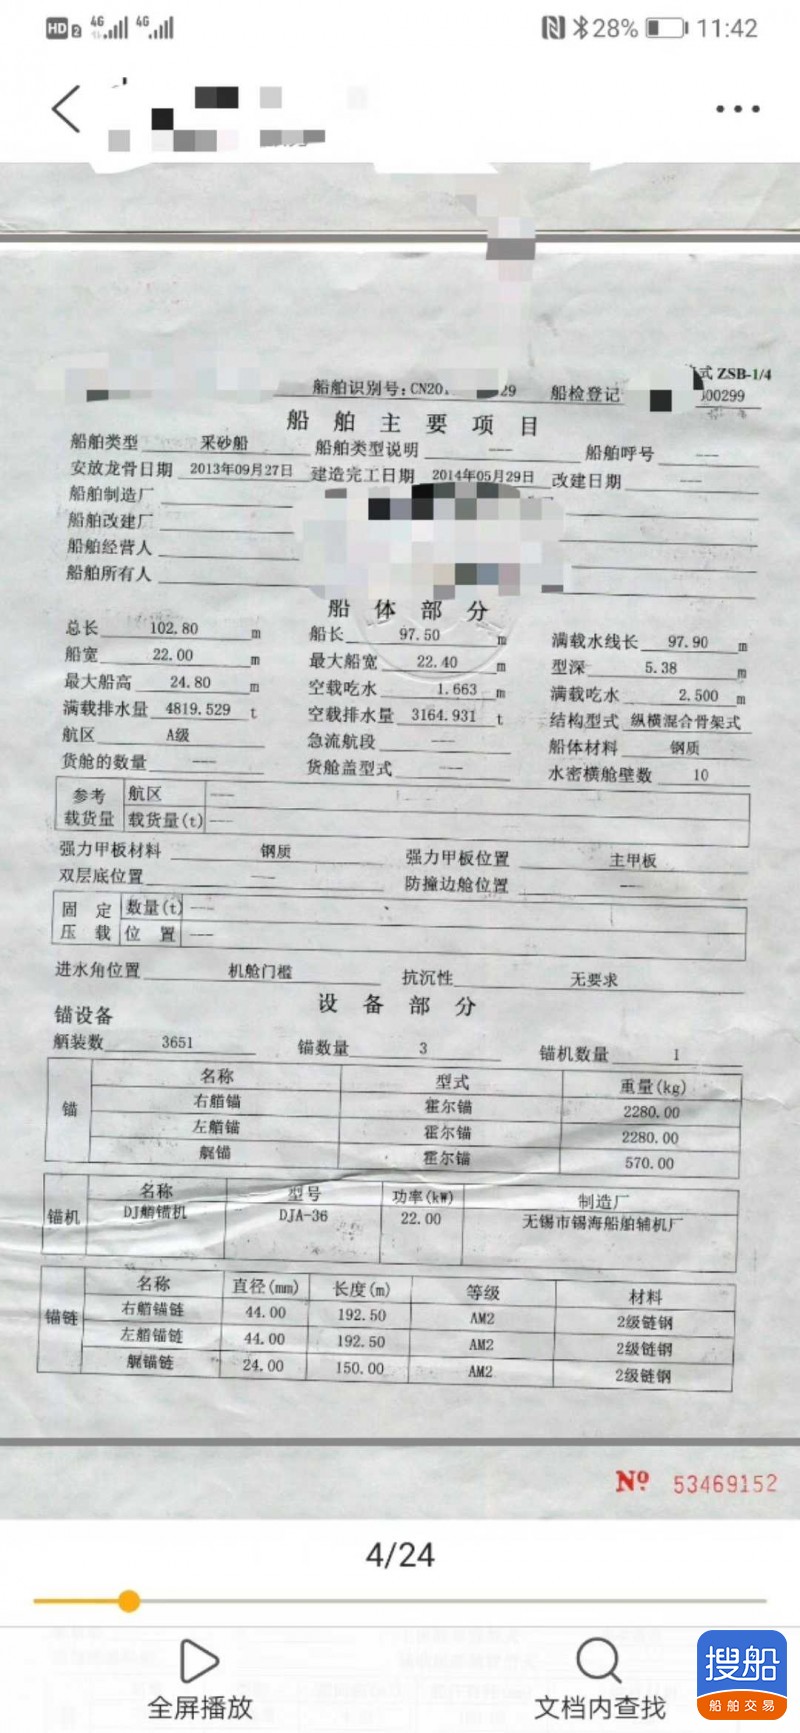 HD 2 4G 4G 28% 11:42
式 ZSB-1/4
船舶识别号:CN20 29 船检登记 00299
船舶主要项目
船舶类型 采砂船 船舶类型说明 --- 船舶呼号 ---
安放龙骨日期 2013年09月27日 建造完工日期 2014年05月29日 改建日期 ---
船舶制造厂
船舶改建厂
船舶经营人
船舶所有人
船体部分
总长 102.80 m 船长 97.50 m 满载水线长 97.90 m
船宽 22.00 m 最大船宽 22.40 m 型深 5.38 m
最大船高 24.80 m 空载吃水 1.663 m 满载吃水 2.500 m
满载排水量 4819.529 t 空载排水量 3164.931 t 结构型式 纵横混合骨架式
航区 A级 急流航段 --- 船体材料 钢质
货舱的数量 --- 货舱盖型式 --- 水密横舱壁数 10
参考 航区 ---
载货量 载货量(t) ---
强力甲板材料 钢质 强力甲板位置 主甲板
双层底位置 --- 防撞边舱位置 ---
固定 数量(t) ---
压载 位置 ---
进水角位置 机舱门槛 抗沉性 无要求
设备部分
锚设备
舾装数 3651 锚数量 3 锚机数量 1
名称 型式 重量(kg)
锚 右艏锚 霍尔锚 2280.00
左艏锚 霍尔锚 2280.00
艉锚 霍尔锚 570.00
名称 型号 功率(kW) 制造厂
锚机 DJ艏锚机 DJA-36 22.00 无锡市锡海船舶辅机厂
名称 直径(mm) 长度(m) 等级 材料
锚链 右艏锚链 44.00 192.50 AM2 2级链钢
左艏锚链 44.00 192.50 AM2 2级链钢
艉锚链 24.00 150.00 AM2 2级链钢
Nº 53469152
4/24
全屏播放 文档内查找
搜船
船舶交易